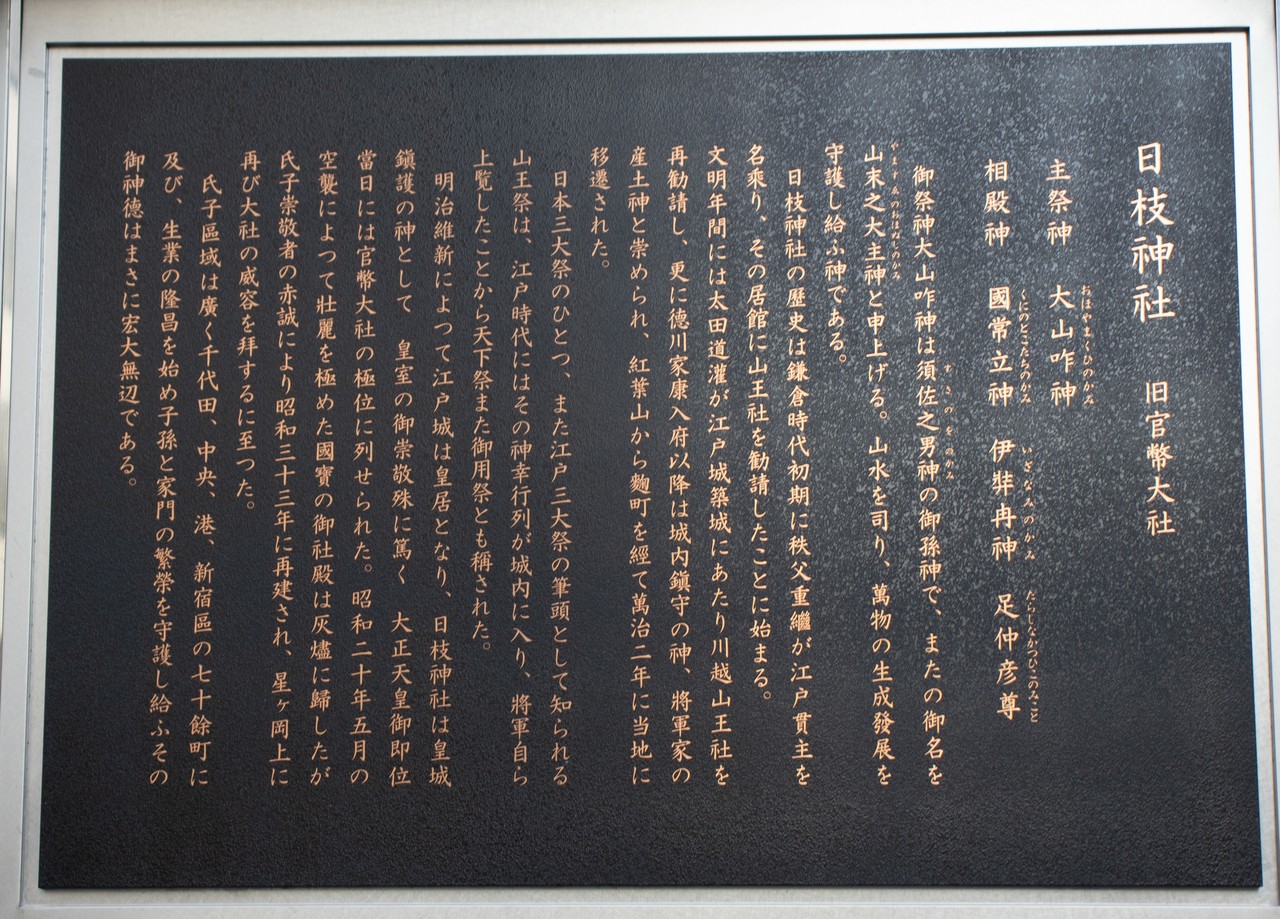 日枝神社　旧官幣大社
主祭神　大山咋神
おほやまくひのかみ
相殿神　國常立神　伊弉冉神　足仲彦尊
くにのとこたちのかみ　いざなみのかみ　たらしなかつひこのみこと
御祭神大山咋神は須佐之男神の御孫神で、またの御名を
すさのをのかみ
山末之大主神と申上げる。山水を司り、萬物の生成發展を
やますゑのおほぬしのかみ
守護し給ふ神である。
日枝神社の歷史は鎌倉時代初期に秩父重繼が江戸貫主を
名乘り、その居館に山王社を勧請したことに始まる。
文明年間には太田道灌が江戸城築城にあたり川越山王社を
再勧請し、更に德川家康入府以降は城内鎭守の神、將軍家の
産土神と崇められ、紅葉山から麴町を經て萬治二年に当地に
移遷された。
日本三大祭のひとつ、また江戸三大祭の筆頭として知られる
山王祭は、江戸時代にはその神幸行列が城内に入り、將軍自ら
上覧したことから天下祭また御用祭とも稱された。
明治維新によつて江戸城は皇居となり、日枝神社は皇城
鎭護の神として　皇室の御崇敬殊に篤く　大正天皇御即位
當日には官幣大社の極位に列せられた。昭和二十年五月の
空襲によつて壯麗を極めた國寶の御社殿は灰燼に歸したが
氏子崇敬者の赤誠により昭和三十三年に再建され、星ヶ岡上に
再び大社の威容を拜するに至つた。
氏子區域は廣く千代田、中央、港、新宿區の七十餘町に
及び、生業の隆昌を始め子孫と家門の繁榮を守護し給ふその
御神德はまさに宏大無辺である。